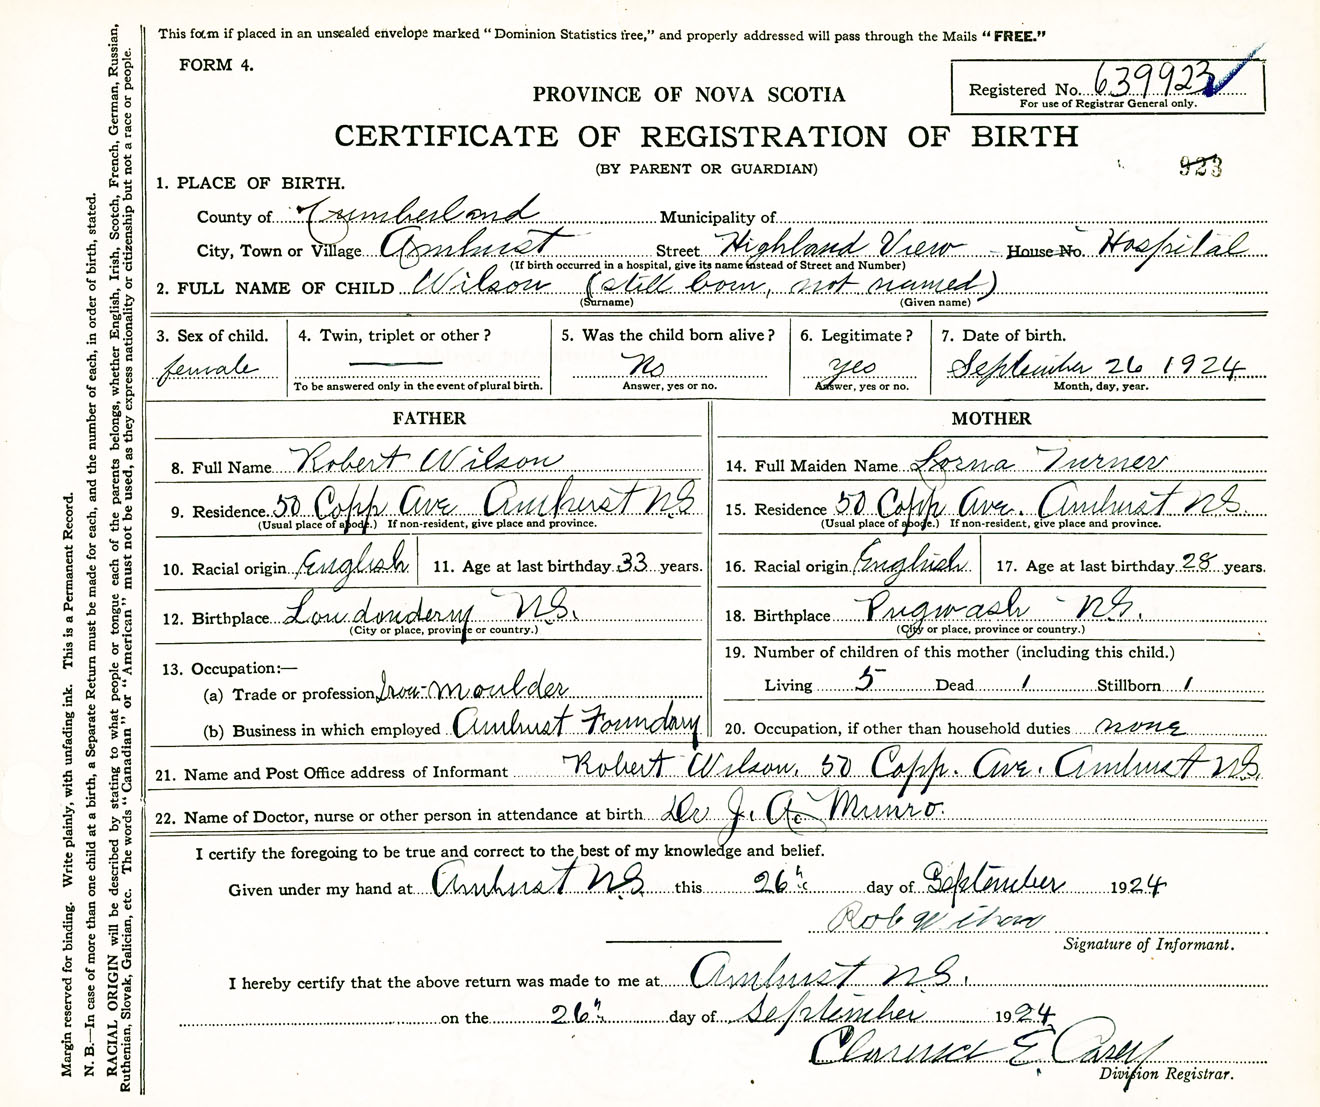 This form if placed in an unsealed envelope marked "Dominion Statistics free," and properly addressed will pass through the Mails "FREE."
FORM 4.
Registered No. 639923
For use of Registrar General only.
PROVINCE OF NOVA SCOTIA
CERTIFICATE OF REGISTRATION OF BIRTH
(BY PARENT OR GUARDIAN)
923
1. PLACE OF BIRTH.
County of Cumberland Municipality of
City, Town or Village Amherst Street Highland View House No. Hospital
(If birth occurred in a hospital, give its name instead of Street and Number)
2. FULL NAME OF CHILD Wilson (still born, not named)
(Surname) (Given name)
3. Sex of child. 4. Twin, triplet or other? 5. Was the child born alive? 6. Legitimate? 7. Date of birth.
female — No yes September 26 1924
To be answered only in the event of plural birth. Answer, yes or no. Answer, yes or no. Month, day, year.
FATHER
8. Full Name Robert Wilson
9. Residence 50 Copp Ave Amherst NS
(Usual place of abode.) If non-resident, give place and province.
10. Racial origin English 11. Age at last birthday 33 years.
12. Birthplace Londonderry N.S.
(City or place, province or country.)
13. Occupation:—
(a) Trade or profession Iron-moulder
(b) Business in which employed Amherst Foundry
MOTHER
14. Full Maiden Name Lorna Turner
15. Residence 50 Copp Ave. Amherst NS.
(Usual place of abode.) If non-resident, give place and province.
16. Racial origin English 17. Age at last birthday 28 years.
18. Birthplace Pugwash - N.S.
(City or place, province or country.)
19. Number of children of this mother (including this child.)
Living 5 Dead 1 Stillborn 1
20. Occupation, if other than household duties none
21. Name and Post Office address of Informant Robert Wilson, 50 Copp. Ave. Amherst N.S.
22. Name of Doctor, nurse or other person in attendance at birth Dr J. A. Munro.
I certify the foregoing to be true and correct to the best of my knowledge and belief.
Given under my hand at Amherst N.S. this 26th day of September 1924
Rob Wilson
Signature of Informant.
I hereby certify that the above return was made to me at Amherst N.S.
on the 26th day of September 1924
Clarence E. Casey
Division Registrar.
Margin reserved for binding. Write plainly, with unfading ink. This is a Permanent Record.
N. B.—In case of more than one child at a birth, a Separate Return must be made for each, and the number of each, in order of birth, stated.
RACIAL ORIGIN will be described by stating to what people or tongue each of the parents belongs, whether English, Irish, Scotch, French, German, Russian,
Ruthenian, Slovak, Galician, etc. The words "Canadian" or "American" must not be used, as they express nationality or citizenship but not a race or people.